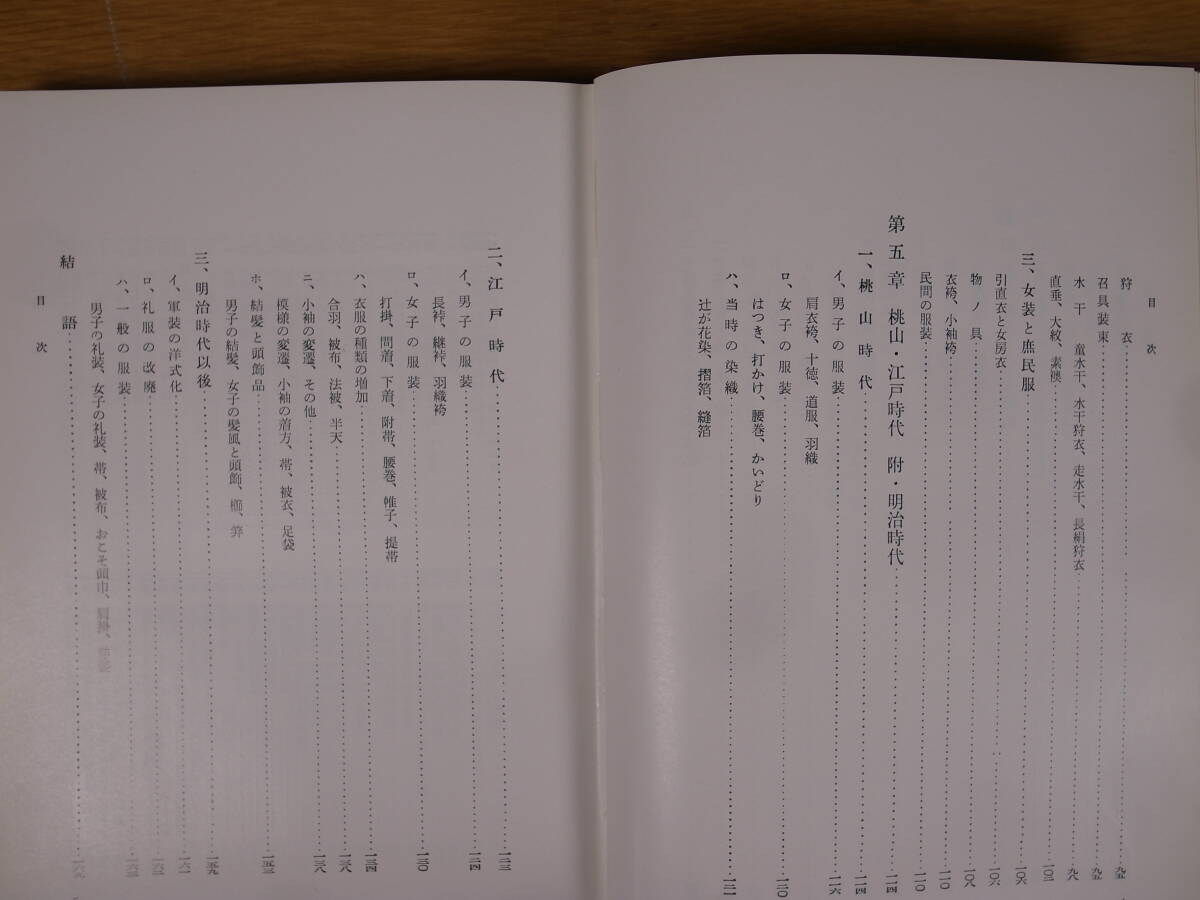 目次
狩衣……九五
召具装束……九五
水干　童水干、水干狩衣、走水干、長絹狩衣……九八
直垂、大紋、素襖……一〇二
三、女装と庶民服……一〇六
引直衣と女房衣……一〇六
物ノ具……一〇八
衣袴、小袖袴……一一〇
民間の服装……一一〇
第五章　桃山・江戸時代　附・明治時代……一一四
一、桃山時代……一一四
イ、男子の服装……一一六
肩衣袴、十徳、道服、羽織
ロ、女子の服装……一二〇
はつき、打かけ、腰巻、かいどり
ハ、当時の染織……一二一
辻が花染、摺箔、縫箔
二、江戸時代……一二三
イ、男子の服装……一二四
長裃、継裃、羽織袴
ロ、女子の服装……一三〇
打掛、間着、下着、附帯、腰巻、帷子、提帯
ハ、衣服の種類の増加……一三四
合羽、被布、法被、半天……一三八
ニ、小袖の変遷、その他……一三八
模様の変遷、小袖の着方、帯、被衣、足袋
ホ、結髪と頭飾品……一五三
男子の結髪、女子の髪風と頭飾、櫛、笄
三、明治時代以後……一五九
イ、軍装の洋式化……一六一
ロ、礼服の改廃……一六二
ハ、一般の服装……一六三
男子の礼装、女子の礼装、帯、被布、おこそ頭巾、肩掛、
結語……
目次